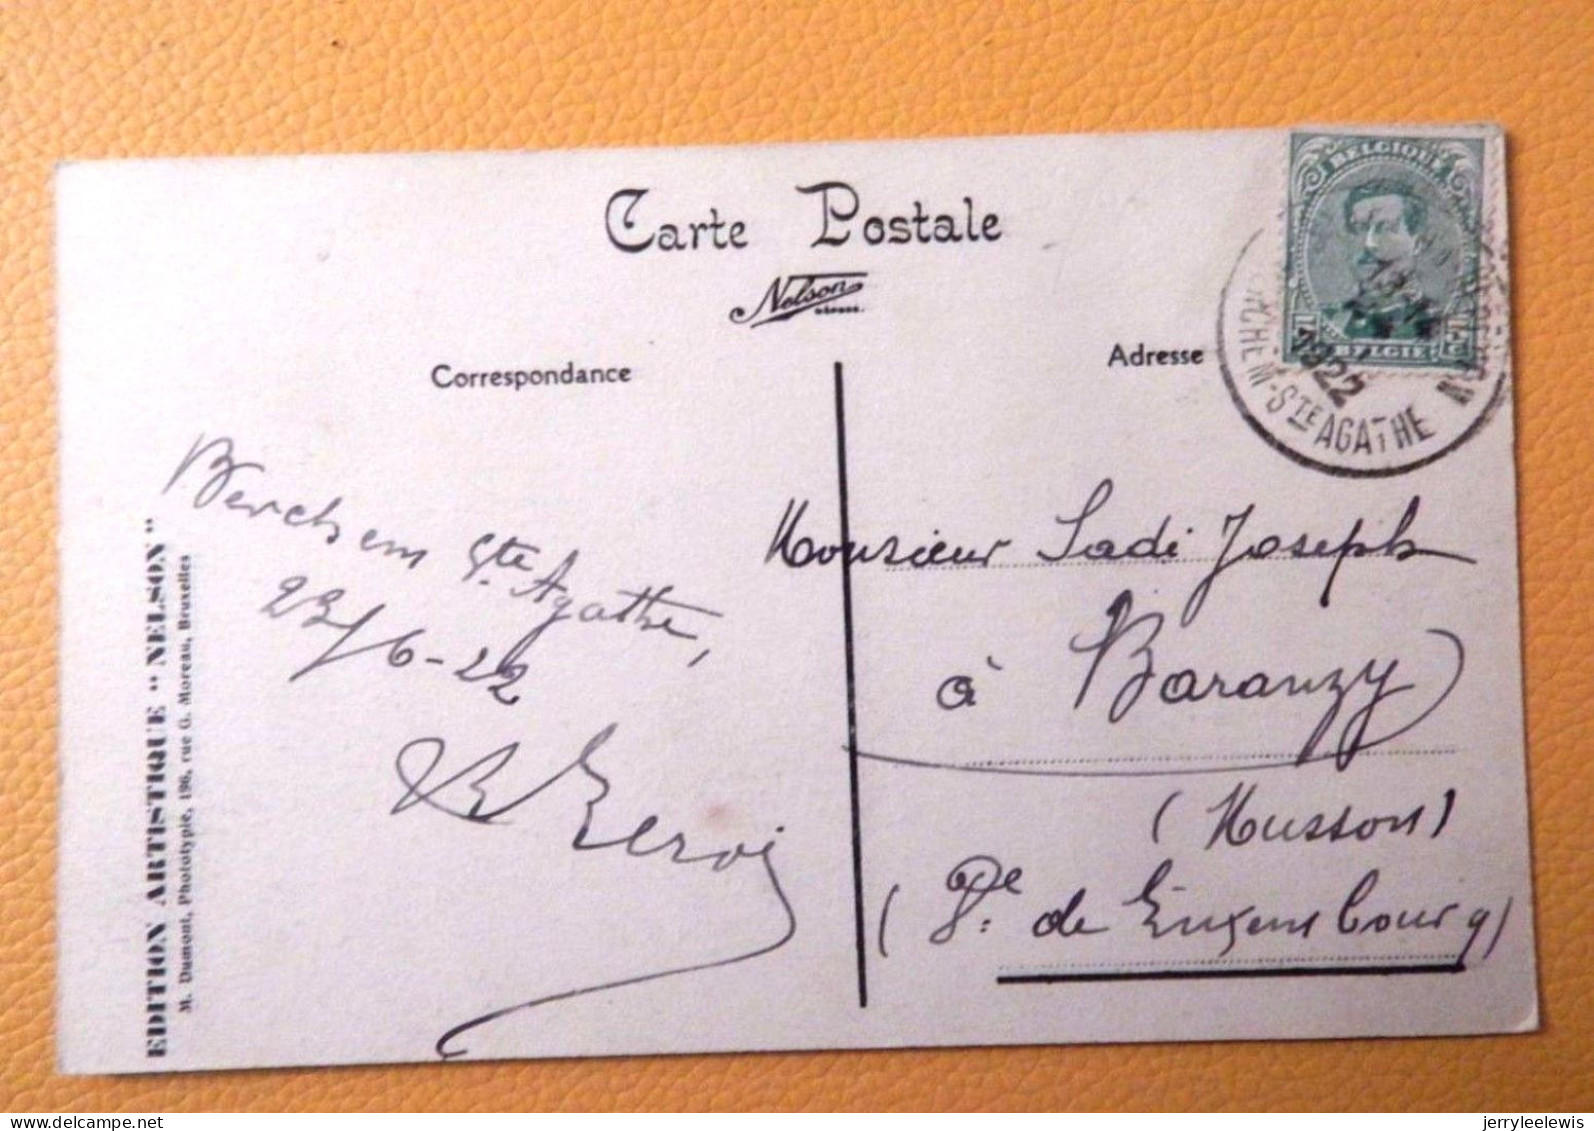 Carte Postale
Nelson
Correspondance
Adresse
BELGIQUE
BELGIE
1922
CHEM-STE AGATHE
Berchem Ste Agathe,
23/6-22
Monsieur Sadi Joseph
à Baranzy
(Musson)
(Pce de Luxembourg)
EDITION ARTISTIQUE "NELSON"
M. Dumont, Phototypie, 196, rue G. Moreau, Bruxelles
delcampe.net
jerryleelewis